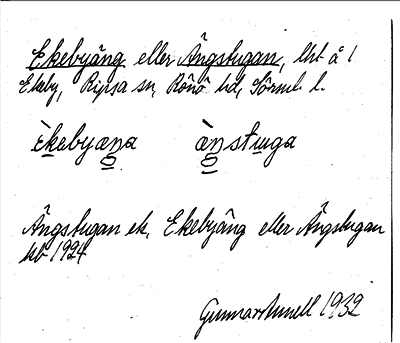 Ekebyäng eller Ängstugan, lht å
Ekeby, Ripsa sn, Rönö hd, Sörml. l.
èkebyæŋa æ̀ŋstɯga
Ängstugan ek. Ekebyäng eller Ängstugan
hb 1924
Gunnar Amnell 1932